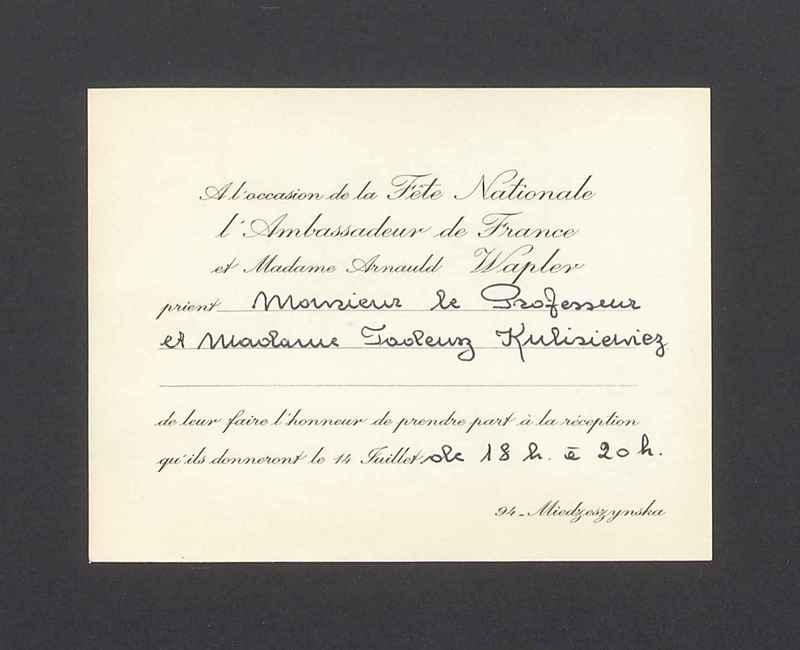 A l'occasion de la Fête Nationale
l'Ambassadeur de France
et Madame Arnauld Wapler
prient Monsieur le Professeur
et Madame Tadeusz Kulisiewicz
de leur faire l'honneur de prendre part à la réception
qu'ils donneront le 14 Juillet de 18 h. à 20 h.
94 - Miedzeszynska